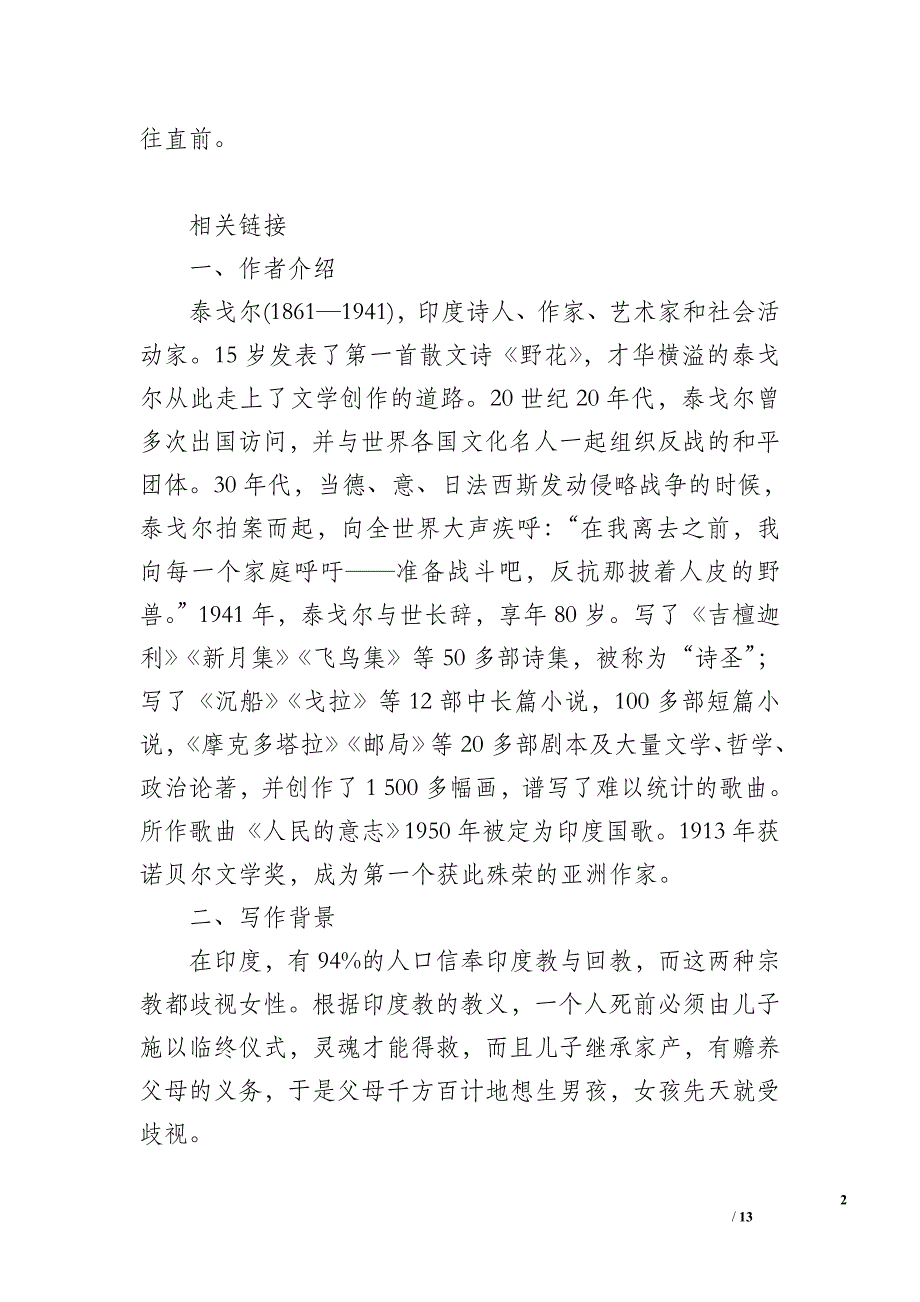 往直前。
相关链接
一、作者介绍
泰戈尔(1861—1941)，印度诗人、作家、艺术家和社会活
动家。15 岁发表了第一首散文诗《野花》，才华横溢的泰戈
尔从此走上了文学创作的道路。20 世纪 20 年代，泰戈尔曾
多次出国访问，并与世界各国文化名人一起组织反战的和平
团体。30 年代，当德、意、日法西斯发动侵略战争的时候，
泰戈尔拍案而起，向全世界大声疾呼：“在我离去之前，我
向每一个家庭呼吁——准备战斗吧，反抗那披着人皮的野
兽。”1941 年，泰戈尔与世长辞，享年 80 岁。写了《吉檀迦
利》《新月集》《飞鸟集》等 50 多部诗集，被称为“诗圣”；
写了《沉船》《戈拉》等 12 部中长篇小说，100 多部短篇小
说，《摩克多塔拉》《邮局》等 20 多部剧本及大量文学、哲学、
政治论著，并创作了 1 500 多幅画，谱写了难以统计的歌曲。
所作歌曲《人民的意志》1950 年被定为印度国歌。1913 年获
诺贝尔文学奖，成为第一个获此殊荣的亚洲作家。
二、写作背景
在印度，有 94%的人口信奉印度教与回教，而这两种宗
教都歧视女性。根据印度教的教义，一个人死前必须由儿子
施以临终仪式，灵魂才能得救，而且儿子继承家产，有赡养
父母的义务，于是父母千方百计地想生男孩，女孩先天就受
歧视。
2
/ 13